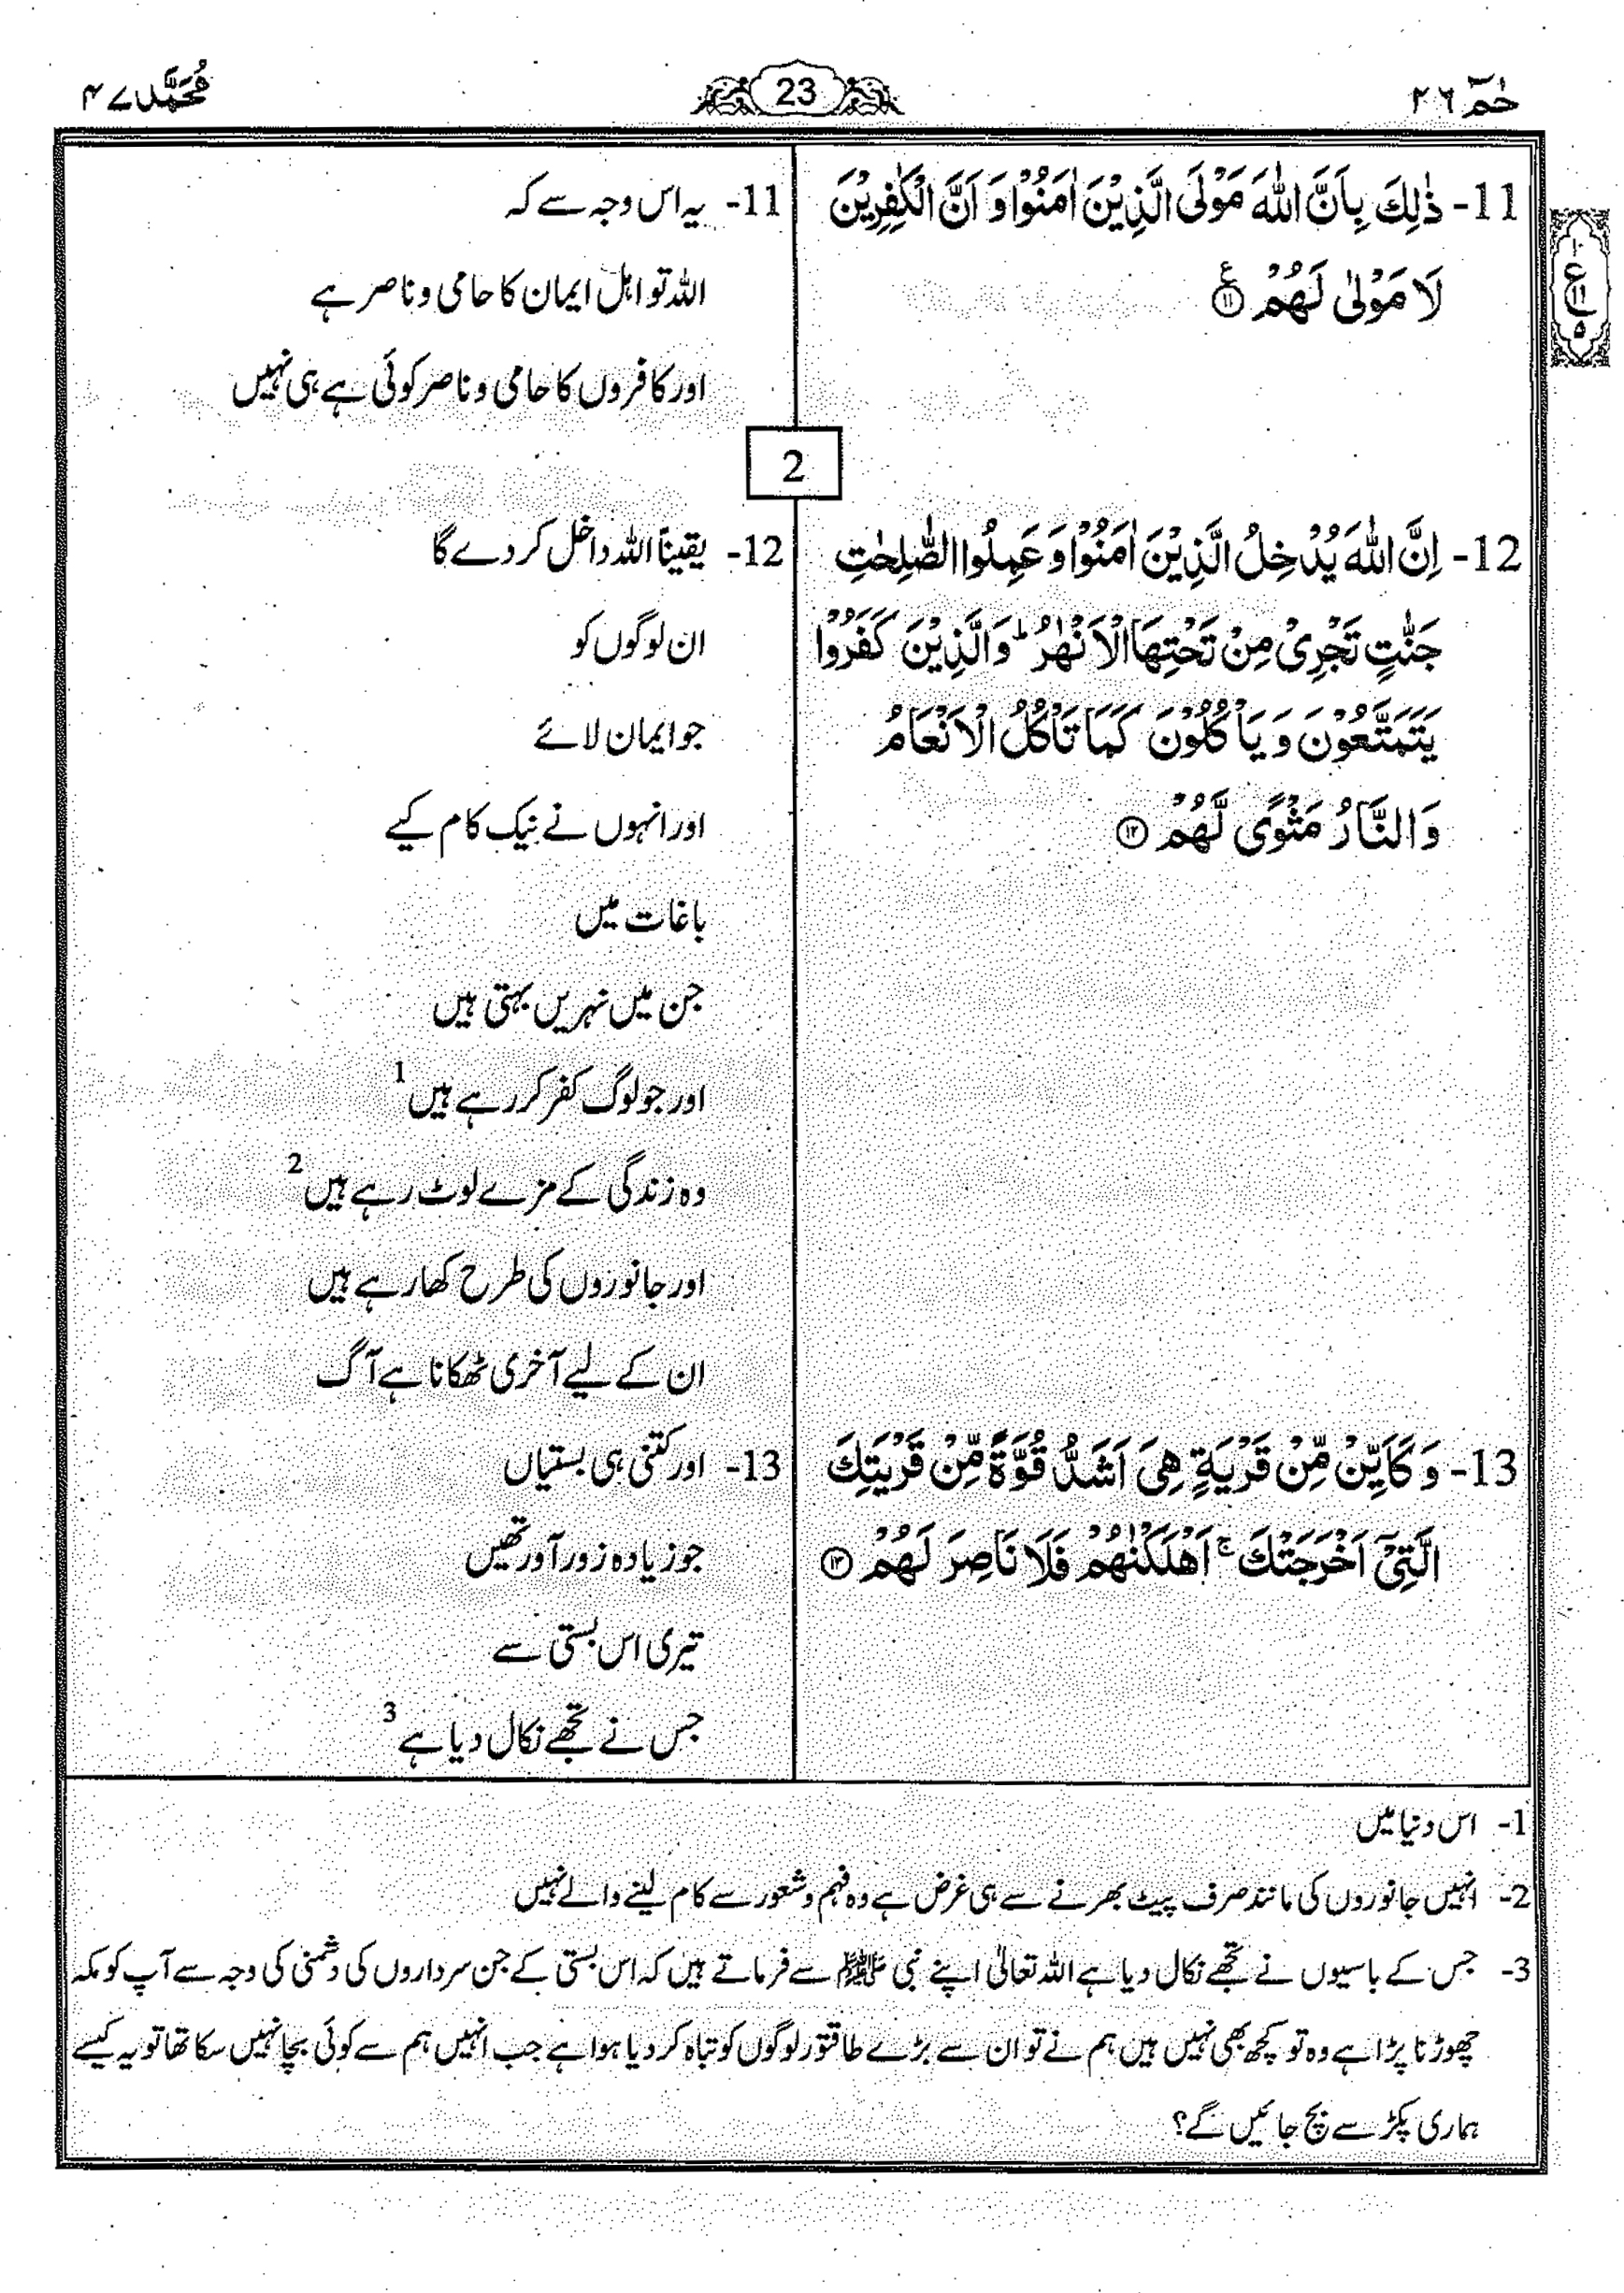 حٰمٓ ٢٦
23
مُحَمَّد ٤٧
11- ذٰلِكَ بِاَنَّ اللّٰهَ مَوْلَى الَّذِيْنَ اٰمَنُوْا وَ اَنَّ الْكٰفِرِيْنَ
لَا مَوْلٰى لَهُمْ ۧ ⑪
ع
١١
٥
11- یہ اس وجہ سے کہ
اللہ تو اہل ایمان کا حامی و ناصر ہے
اور کافروں کا حامی و ناصر کوئی ہے ہی نہیں
2
12- اِنَّ اللّٰهَ يُدْخِلُ الَّذِيْنَ اٰمَنُوْا وَ عَمِلُوا الصّٰلِحٰتِ
جَنّٰتٍ تَجْرِيْ مِنْ تَحْتِهَا الْاَنْهٰرُ ؕ وَ الَّذِيْنَ كَفَرُوْا
يَتَمَتَّعُوْنَ وَ يَاْكُلُوْنَ كَمَا تَاْكُلُ الْاَنْعَامُ
وَ النَّارُ مَثْوًى لَّهُمْ ⑫
12- یقیناً اللہ داخل کر دے گا
ان لوگوں کو
جو ایمان لائے
اور انہوں نے نیک کام کیے
باغات میں
جن میں نہریں بہتی ہیں
اور جو لوگ کفر کر رہے ہیں 1
وہ زندگی کے مزے لوٹ رہے ہیں 2
اور جانوروں کی طرح کھا رہے ہیں
ان کے لیے آخری ٹھکانا ہے آگ
13- وَ كَاَيِّنْ مِّنْ قَرْيَةٍ هِيَ اَشَدُّ قُوَّةً مِّنْ قَرْيَتِكَ
الَّتِيْۤ اَخْرَجَتْكَ ۚ اَهْلَكْنٰهُمْ فَلَا نَاصِرَ لَهُمْ ⑬
13- اور کتنی ہی بستیاں
جو زیادہ زور آور تھیں
تیری اس بستی سے
جس نے تجھے نکال دیا ہے 3
1- اس دنیا میں
2- انہیں جانوروں کی مانند صرف پیٹ بھرنے سے ہی غرض ہے وہ فہم و شعور سے کام لینے والے نہیں
3- جس کے باسیوں نے تجھے نکال دیا ہے اللہ تعالیٰ اپنے نبی ﷺ سے فرماتے ہیں کہ اس بستی کے جن سرداروں کی دشمنی کی وجہ سے آپ کو مکہ
چھوڑنا پڑا ہے وہ تو کچھ بھی نہیں ہیں ہم نے تو ان سے بڑے طاقتور لوگوں کو تباہ کر دیا ہوا ہے جب انہیں ہم سے کوئی بچا نہیں سکا تھا تو یہ کیسے
ہماری پکڑ سے بچ جائیں گے؟